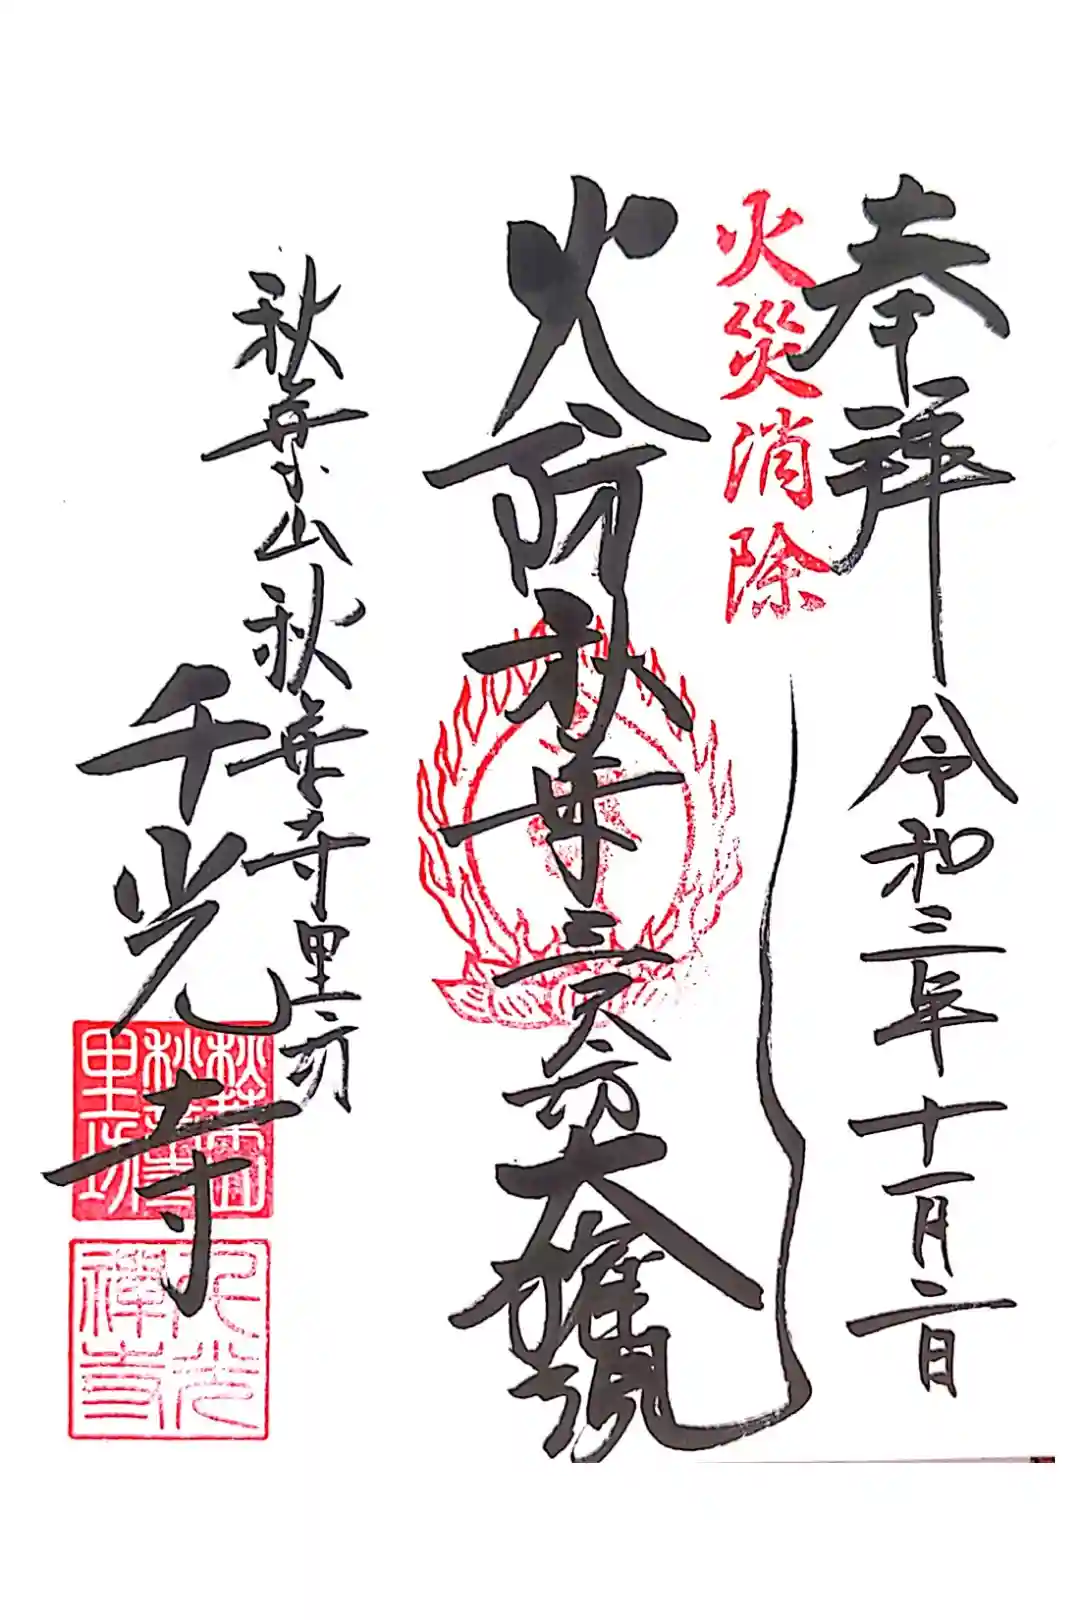 奉拝
令和三年十一月二日
火災消除
火防秋葉三尺坊大権現
秋葉山秋葉寺里坊
千光寺
秋葉山
秋葉寺
里坊
千光
禅寺